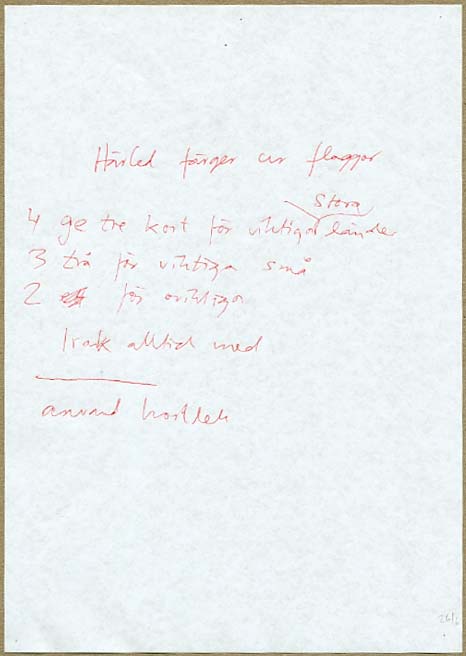 Härled färger ur flaggor
4 ge tre kort för viktiga stora länder
3 två för viktiga små
2 för oviktiga
Irak alltid med
använd kortlek